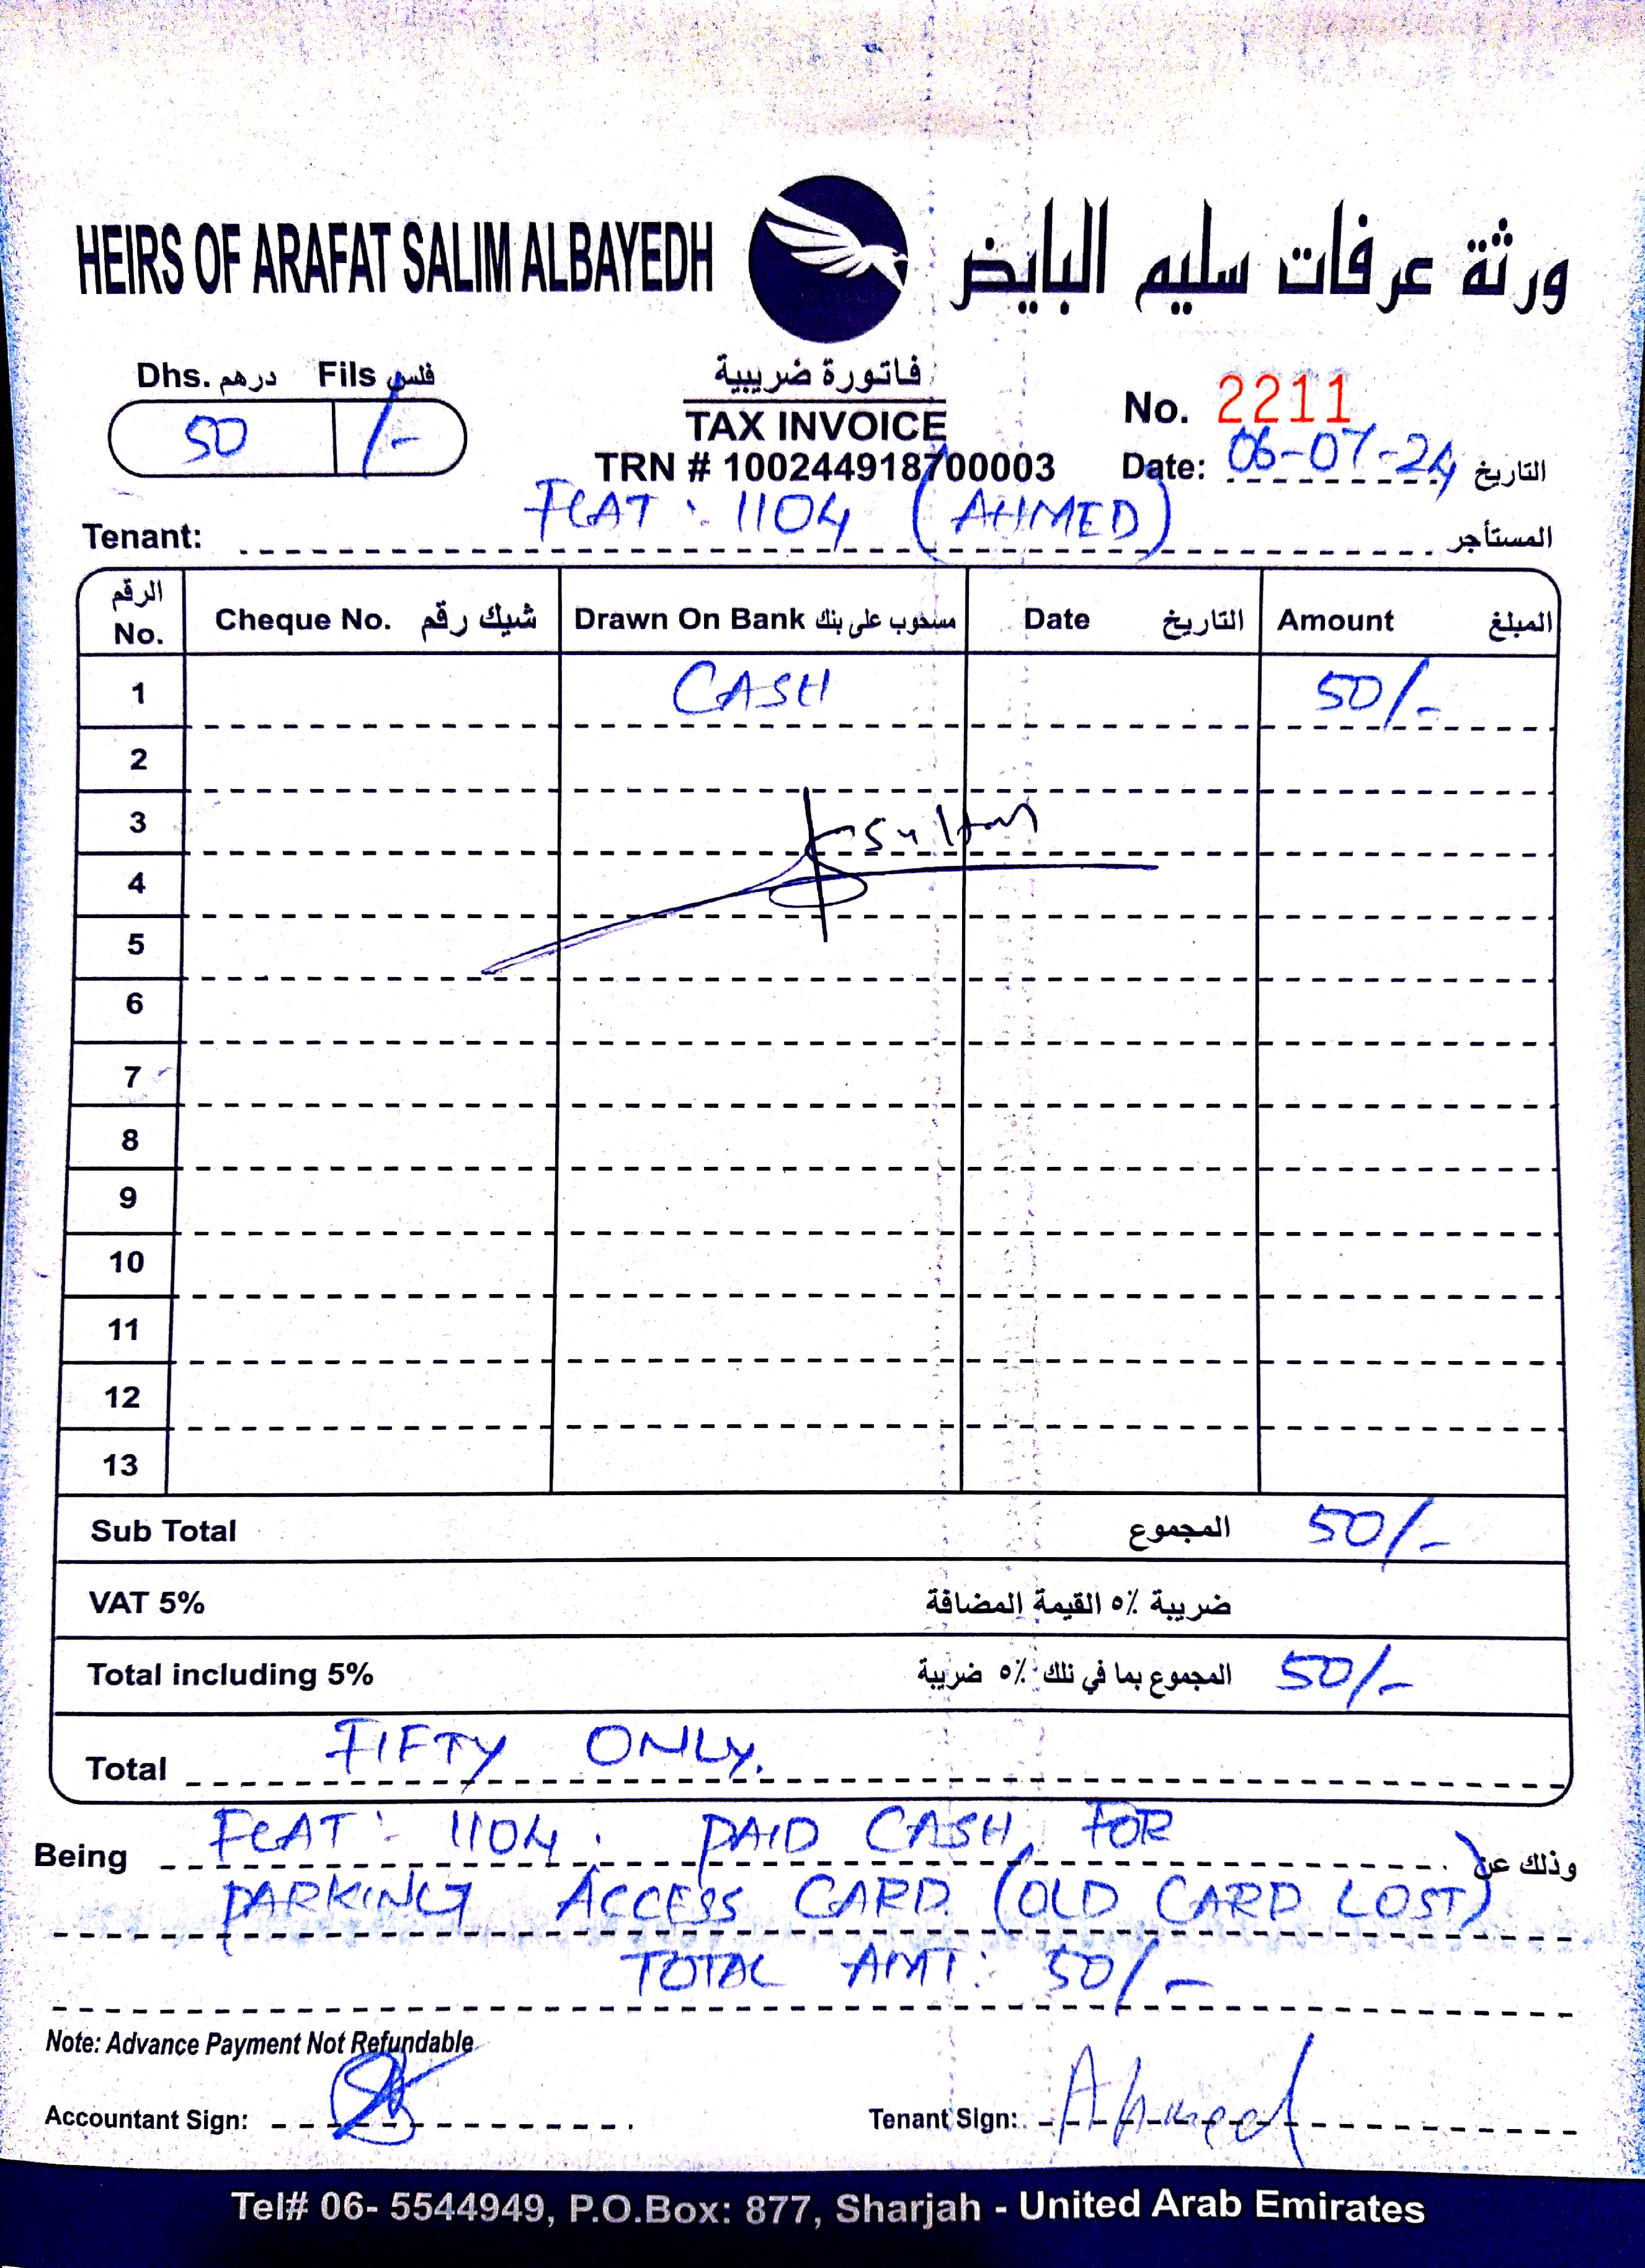 HEIRS OF ARAFAT SALIM ALBAYEDH ورثة عرفات سليم البايض
Dhs. درهم Fils فلس
50 /-
فاتورة ضريبية
TAX INVOICE
TRN # 100244918700003
No. 2211
Date: 06-07-24 التاريخ
Tenant: FLAT : 1104 (AHMED) المستأجر
الرقم No. Cheque No. شيك رقم Drawn On Bank مسحوب على بنك Date التاريخ Amount المبلغ
1 CASH 50/-
2
3 Sultan
4
5
6
7
8
9
10
11
12
13
Sub Total المجموع 50/-
VAT 5% ضريبة ٥٪ القيمة المضافة
Total including 5% المجموع بما في ذلك ٥٪ ضريبة 50/-
Total FIFTY ONLY.
Being FLAT : 1104. PAID CASH, FOR وذلك عن
PARKING ACCESS CARD. (OLD CARD LOST)
TOTAL AMT: 50/-
Note: Advance Payment Not Refundable
Accountant Sign: Tenant Sign: Ahmed
Tel# 06- 5544949, P.O.Box: 877, Sharjah - United Arab Emirates